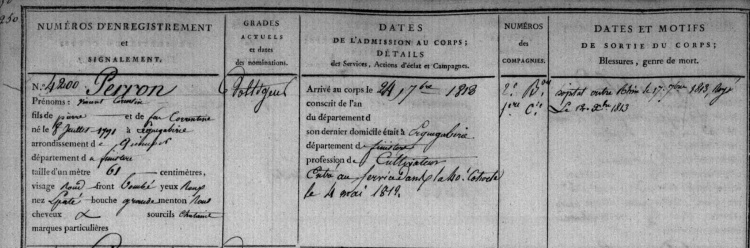 250.
NUMÉROS D'ENREGISTREMENT
et
SIGNALEMENT.
GRADES
ACTUELS
et dates
des nominations.
DATES
DE L'ADMISSION AU CORPS;
DÉTAILS
des Services, Actions d'éclat et Campagnes.
NUMÉROS
des
COMPAGNIES.
DATES ET MOTIFS
DE SORTIE DU CORPS;
Blessures, genre de mort.
N.º 4200 Perron
Prénoms: Corentin
fils de pierre et de feu Corentine
né le 8 Juillet 1791 à Ergugabérie
arrondissement de Quimper
département d finistère
taille d'un mètre 61 centimètres,
visage Rond front bombé yeux Roux
nez Epaté bouche grande menton Rond
cheveux d sourcils Chatains
marques particulières
Voltigeur
Arrivé au corps le 24 7bre 1813
conscrit de l'an
du département d
son dernier domicile était à Ergugabérie
département d finistère
profession de Cultivateur
Entré au Service dans la Cohorte
le 4 mai 1812.
2e. Bon
1ere Cie
hopital outre Rhin le 17 7bre 1813 Rayé
Le 12 Xbre 1813